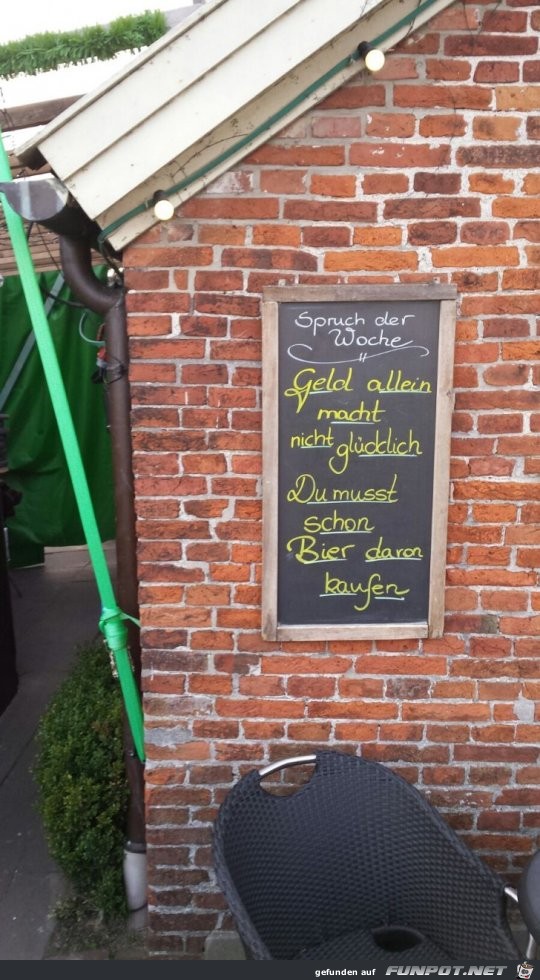 Spruch der
Woche
Geld allein
macht
nicht glücklich
Du musst
schon
Bier daron
kaufen
gefunden auf
FUNPOT.NET